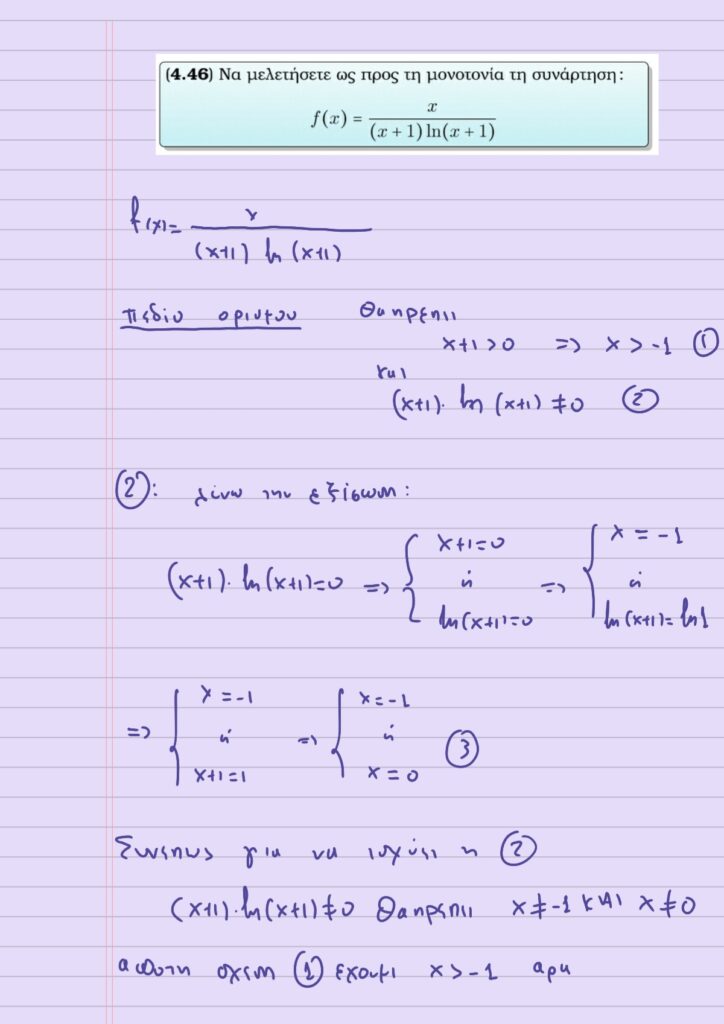 (4.46) Να μελετήσετε ως προς τη μονοτονία τη συνάρτηση:
f(x) = x / ((x + 1) ln(x + 1))
f(x) = x / ((x+1) ln (x+1))
πεδίο ορισμου Θα πρεπει
x+1 > 0 => x > -1 ①
και
(x+1). ln (x+1) ≠ 0 ②
②: λύνω την εξίσωση:
(x+1). ln(x+1)=0 => { x+1=0 ή ln(x+1)=0 => { x = -1 ή ln(x+1)= ln1
=> { x = -1 ή x+1=1 => { x = -1 ή x = 0 ③
Συνεπως για να ισχύει η ②
(x+1).ln(x+1)≠0 Θα πρεπει x≠-1 και x≠0
απο τη σχεση ① εχουμε x > -1 αρα